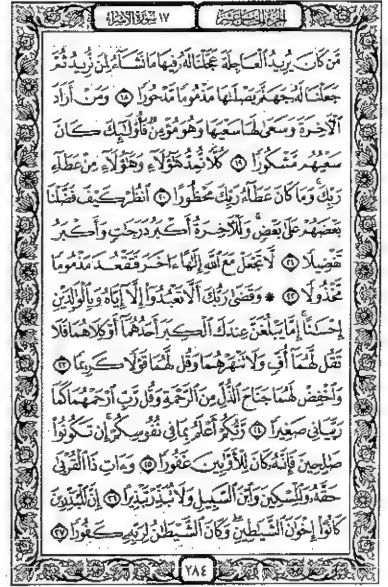 الجزء الخامس عشر ١٧ سورة الإسراء
مَّن كَانَ يُرِيدُ ٱلْعَاجِلَةَ عَجَّلْنَا لَهُۥ فِيهَا مَا نَشَآءُ لِمَن نُّرِيدُ ثُمَّ
جَعَلْنَا لَهُۥ جَهَنَّمَ يَصْلَىٰهَا مَذْمُومًا مَّدْحُورًا ١٨ وَمَنْ أَرَادَ
ٱلْأَخِرَةَ وَسَعَىٰ لَهَا سَعْيَهَا وَهُوَ مُؤْمِنٌ فَأُو۟لَٰٓئِكَ كَانَ
سَعْيُهُم مَّشْكُورًا ١٩ كُلًّا نُّمِدُّ هَٰٓؤُلَآءِ وَهَٰٓؤُلَآءِ مِنْ عَطَآءِ
رَبِّكَ ۚ وَمَا كَانَ عَطَآءُ رَبِّكَ مَحْظُورًا ٢٠ ٱنظُرْ كَيْفَ فَضَّلْنَا
بَعْضَهُمْ عَلَىٰ بَعْضٍ ۚ وَلَلْأَخِرَةُ أَكْبَرُ دَرَجَٰتٍ وَأَكْبَرُ
تَفْضِيلًا ٢١ لَّا تَجْعَلْ مَعَ ٱللَّهِ إِلَٰهًا ءَاخَرَ فَتَقْعُدَ مَذْمُومًا
مَّخْذُولًا ٢٢ * وَقَضَىٰ رَبُّكَ أَلَّا تَعْبُدُوٓا۟ إِلَّآ إِيَّاهُ وَبِٱلْوَٰلِدَيْنِ
إِحْسَٰنًا ۚ إِمَّا يَبْلُغَنَّ عِندَكَ ٱلْكِبَرَ أَحَدُهُمَآ أَوْ كِلَاهُمَا فَلَا
تَقُل لَّهُمَآ أُفٍّ وَلَا تَنْهَرْهُمَا وَقُل لَّهُمَا قَوْلًا كَرِيمًا ٢٣
وَٱخْفِضْ لَهُمَا جَنَاحَ ٱلذُّلِّ مِنَ ٱلرَّحْمَةِ وَقُل رَّبِّ ٱرْحَمْهُمَا كَمَا
رَبَّيَانِى صَغِيرًا ٢٤ رَّبُّكُمْ أَعْلَمُ بِمَا فِى نُفُوسِكُمْ ۚ إِن تَكُونُوا۟
صَٰلِحِينَ فَإِنَّهُۥ كَانَ لِلْأَوَّٰبِينَ غَفُورًا ٢٥ وَءَاتِ ذَا ٱلْقُرْبَىٰ
حَقَّهُۥ وَٱلْمِسْكِينَ وَٱبْنَ ٱلسَّبِيلِ وَلَا تُبَذِّرْ تَبْذِيرًا ٢٦ إِنَّ ٱلْمُبَذِّرِينَ
كَانُوٓا۟ إِخْوَٰنَ ٱلشَّيَٰطِينِ ۖ وَكَانَ ٱلشَّيْطَٰنُ لِرَبِّهِۦ كَفُورًا ٢٧
٢٨٤